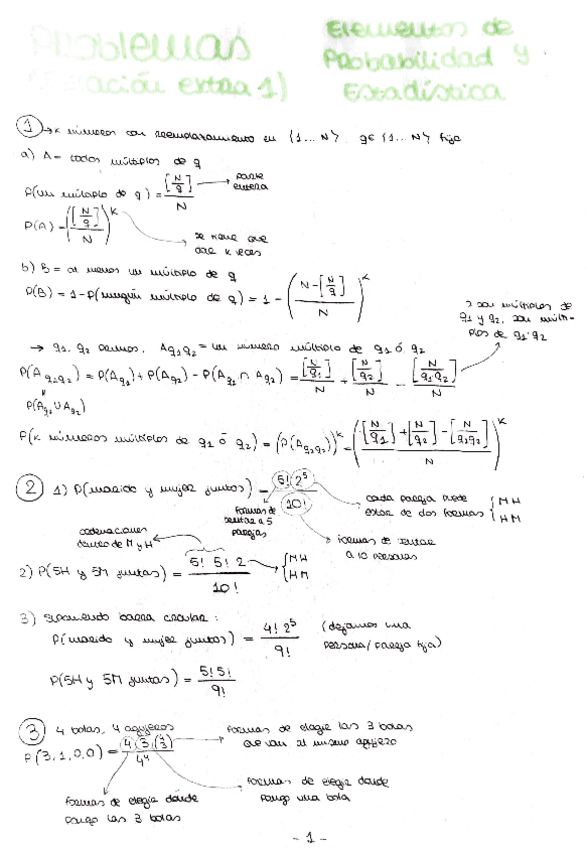 Problemas
Elementos de
Probabilidad y
Estadística
(Relación extra 1)
① → k números con reemplazamiento en {1...N} q∈{1...N} fijo
a) A = todos múltiplos de q
P(un múltiplo de q) = [N/q]/N → parte entera
P(A) = ([N/q]/N)^k → se tiene que dar k veces
b) B = al menos un múltiplo de q
P(B) = 1 - P(ningún múltiplo de q) = 1 - ((N-[N/q])/N)^k
→ q1, q2 primos, Aq1q2 = un número múltiplo de q1 ó q2
si son múltiplos de q1 y q2, son múltiplos de q1·q2
P(Aq1q2) = P(Aq1) + P(Aq2) - P(Aq1 ∩ Aq2) = [N/q1]/N + [N/q2]/N - [N/q1q2]/N
P(Aq1 ∪ Aq2)
P(k números múltiplos de q1 ó q2) = (P(Aq1q2))^k = (([N/q1]+[N/q2]-[N/q1q2])/N)^k
② 1) P(marido y mujer juntos) = 5! 2^5 / 10!
cada pareja puede estar de dos formas { MH HM
formas de sentar a 5 parejas
formas de sentar a 10 personas
ordenaciones dentro de M y H
2) P(5H y 5M juntas) = 5! 5! 2 / 10! → { MH HM
3) Suponiendo barra circular:
P(marido y mujer juntos) = 4! 2^5 / 9! (dejamos una persona/pareja fija)
P(5H y 5M juntas) = 5! 5! / 9!
③ 4 bolas, 4 agujeros
P(3,1,0,0) = 4·3·(4 3) / 4^4
formas de elegir las 3 bolas que van al mismo agujero
formas de elegir dónde pongo una bola
formas de elegir dónde pongo las 3 bolas
- 1 -